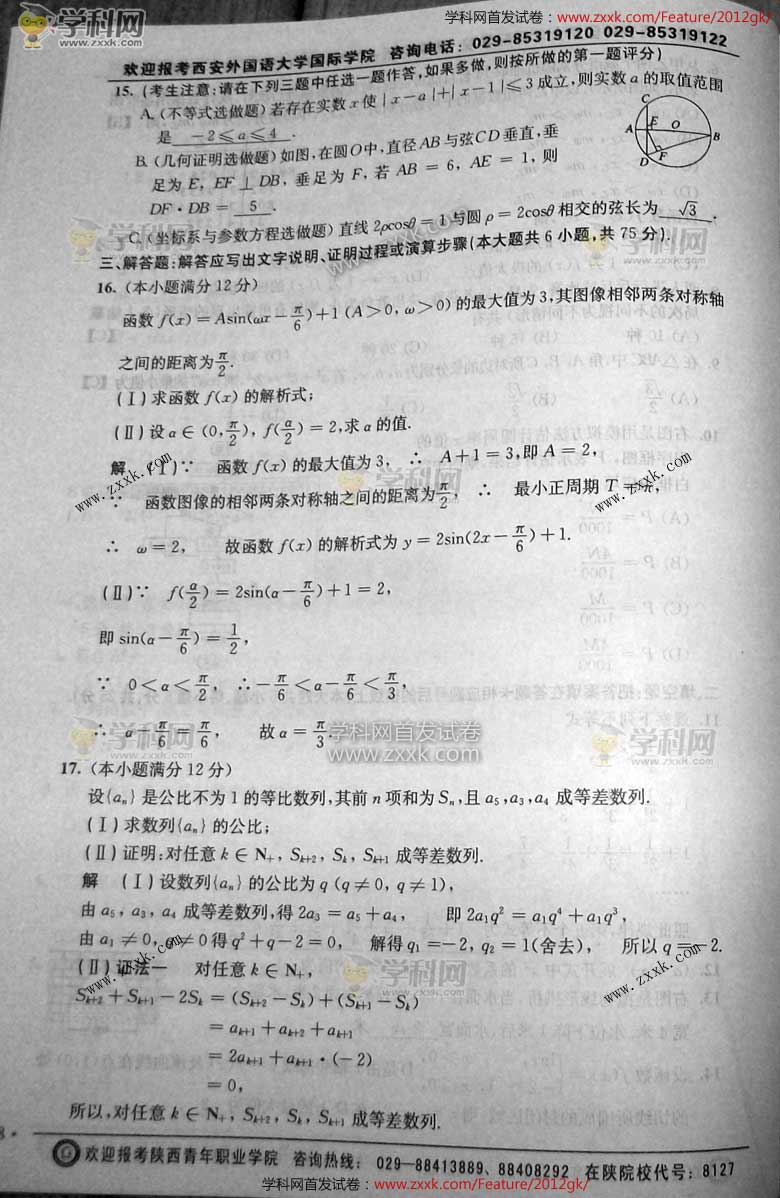 学科网首发试卷：www.zxxk.com/Feature/2012gk/
学科网
www.zxxk.com
欢迎报考西安外国语大学国际学院 咨询电话：029-85319120 029-85319122
15.（考生注意:请在下列三题中任选一题作答,如果多做,则按所做的第一题评分）
A.(不等式选做题)若存在实数x使|x－a|＋|x－1|≤3成立,则实数a的取值范围
是 －2≤a≤4 .
B.(几何证明选做题)如图,在圆O中,直径AB与弦CD垂直,垂
足为E, EF⊥DB, 垂足为F, 若AB = 6, AE = 1, 则
DF·DB = 5 .
C
A
E
O
B
F
D
C.(坐标系与参数方程选做题)直线2ρcosθ = 1与圆ρ = 2cosθ相交的弦长为 √3 .
三、解答题:解答应写出文字说明、证明过程或演算步骤(本大题共6小题,共75分).
16.（本小题满分12分）
函数f(x) = Asin(ωx－π/6)+1 (A＞0, ω＞0)的最大值为3,其图像相邻两条对称轴
之间的距离为π/2.
(Ⅰ)求函数f(x)的解析式;
(Ⅱ)设α∈(0,π/2), f(α/2) = 2,求α的值.
解 (Ⅰ)∵ 函数f(x)的最大值为3, ∴ A+1 = 3,即A = 2,
∵ 函数图像的相邻两条对称轴之间的距离为π/2, ∴ 最小正周期T = π,
∴ ω = 2, 故函数f(x)的解析式为y = 2sin(2x－π/6)+1.
(Ⅱ)∵ f(α/2) = 2sin(α－π/6)+1 = 2,
即sin(α－π/6) = 1/2,
∵ 0＜α＜π/2, ∴－π/6＜α－π/6＜π/3,
∴ α－π/6 = π/6, 故α = π/3.
学科网首发试卷
www.zxxk.com
17.（本小题满分12分）
设{aₙ}是公比不为1的等比数列,其前n项和为Sₙ,且a₅,a₃,a₄成等差数列.
(Ⅰ)求数列{aₙ}的公比;
(Ⅱ)证明:对任意k∈N₊, Sₖ₊₂, Sₖ, Sₖ₊₁成等差数列.
解 (Ⅰ)设数列{aₙ}的公比为q (q≠0, q≠1),
由a₅, a₃, a₄成等差数列,得2a₃ = a₅+a₄, 即2a₁q² = a₁q⁴+a₁q³,
由a₁≠0, q≠0得q²+q－2 = 0, 解得q₁ =－2, q₂ = 1(舍去), 所以q =－2.
(Ⅱ)证法一 对任意k∈N₊,
Sₖ₊₂+Sₖ₊₁－2Sₖ = (Sₖ₊₂－Sₖ)+(Sₖ₊₁－Sₖ)
= aₖ₊₁+aₖ₊₂+aₖ₊₁
= 2aₖ₊₁+aₖ₊₁·(－2)
= 0,
所以,对任意k∈N₊, Sₖ₊₂, Sₖ, Sₖ₊₁成等差数列.
8·
欢迎报考陕西青年职业学院 咨询热线：029—88413889、88408292 在陕院校代号：8127
学科网首发试卷：www.zxxk.com/Feature/2012gk/